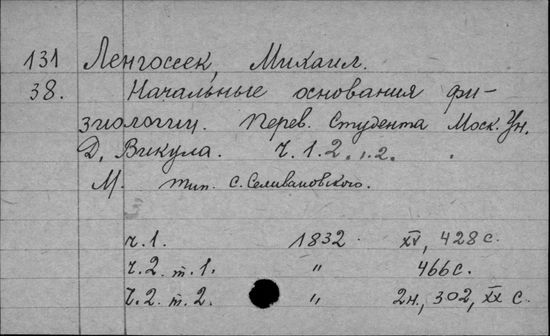 131 Ленгоссек, Михаил.
38. Начальные основания фи-
зиологии. Перев. Студента Моск. Ун.
Д. Викула. Ч. 1. 2.
М. тип. С. Селивановского.
ч. 1. 1832 XV, 428 с.
ч. 2. т. 1. " 466 с.
Ч. 2. т. 2. " 2н., 302, XX с.